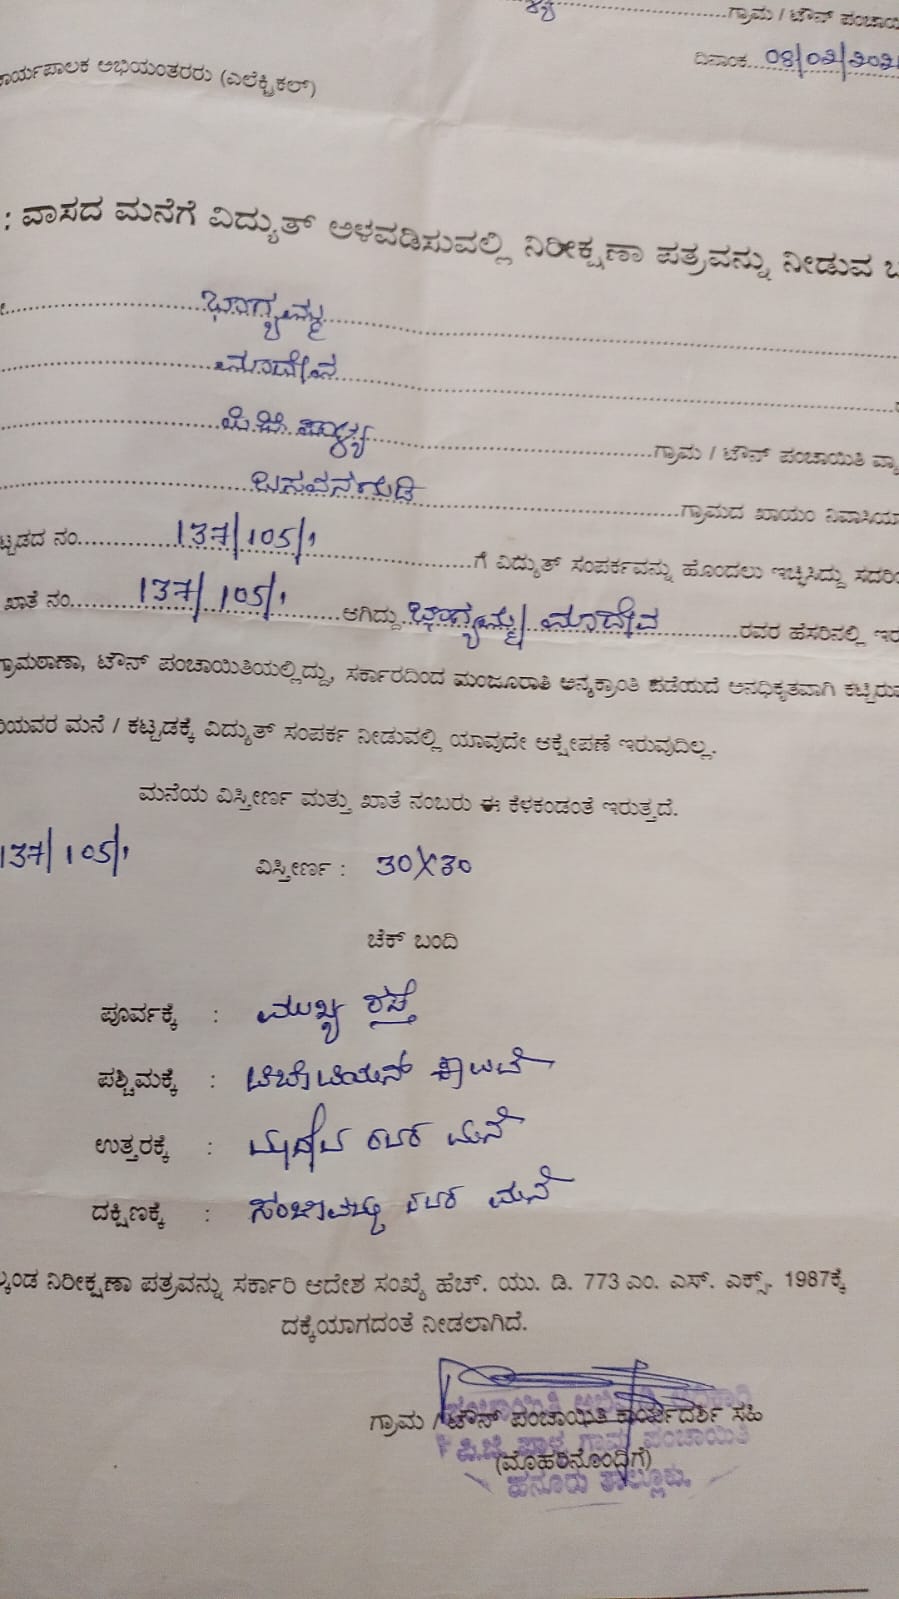 ಗ್ರಾಮ / ಟೌನ್ ಪಂಚಾಯಿ
ದಿನಾಂಕ
ಕಾರ್ಯಪಾಲಕ ಅಭಿಯಂತರರು (ಎಲೆಕ್ಟ್ರಿಕಲ್)
: ವಾಸದ ಮನೆಗೆ ವಿದ್ಯುತ್ ಅಳವಡಿಸುವಲ್ಲಿ ನಿರೀಕ್ಷಣಾ ಪತ್ರವನ್ನು ನೀಡುವ ಬ
ಭಾಗ್ಯಮ್ಮ
ಮಾದೇವ
ಪಿ.ಜಿ. ಪಾಳ್ಯ ಗ್ರಾಮ / ಟೌನ್ ಪಂಚಾಯಿತಿ ವ್ಯಾ
ಬಸವನಗುಡಿ ಗ್ರಾಮದ ಖಾಯಂ ನಿವಾಸಿಯಾ
ಟ್ಟಡದ ನಂ. 137/105/1 ಗೆ ವಿದ್ಯುತ್ ಸಂಪರ್ಕವನ್ನು ಹೊಂದಲು ಇಚ್ಛಿಸಿದ್ದು ಸದರಿ
ಖಾತೆ ನಂ. 137/105/1 ಆಗಿದ್ದು ಭಾಗ್ಯಮ್ಮ/ ಮಾದೇವ ರವರ ಹೆಸರಿನಲ್ಲಿ ಇರ
ಗ್ರಾಮಠಾಣಾ, ಟೌನ್ ಪಂಚಾಯಿತಿಯಲ್ಲಿದ್ದು, ಸರ್ಕಾರದಿಂದ ಮಂಜೂರಾತಿ ಅನ್ಯಕ್ರಾಂತಿ ಪಡೆಯದೆ ಅನಧಿಕೃತವಾಗಿ ಕಟ್ಟಿರುವ
ರಿಯವರ ಮನೆ / ಕಟ್ಟಡಕ್ಕೆ ವಿದ್ಯುತ್ ಸಂಪರ್ಕ ನೀಡುವಲ್ಲಿ ಯಾವುದೇ ಆಕ್ಷೇಪಣೆ ಇರುವುದಿಲ್ಲ.
ಮನೆಯ ವಿಸ್ತೀರ್ಣ ಮತ್ತು ಖಾತೆ ನಂಬರು ಈ ಕೆಳಕಂಡಂತೆ ಇರುತ್ತದೆ.
137/105/1 ವಿಸ್ತೀರ್ಣ : 30X30
ಚೆಕ್ ಬಂದಿ
ಪೂರ್ವಕ್ಕೆ : ಮುಖ್ಯ ರಸ್ತೆ
ಪಶ್ಚಿಮಕ್ಕೆ :
ಉತ್ತರಕ್ಕೆ : ರವರ ಮನೆ
ದಕ್ಷಿಣಕ್ಕೆ : ರವರ ಮನೆ
ಲ್ಕಂಡ ನಿರೀಕ್ಷಣಾ ಪತ್ರವನ್ನು ಸರ್ಕಾರಿ ಆದೇಶ ಸಂಖ್ಯೆ ಹೆಚ್. ಯು. ಡಿ. 773 ಎಂ. ಎಸ್. ಎಕ್ಸ್. 1987ಕ್ಕೆ
ದಕ್ಕೆಯಾಗದಂತೆ ನೀಡಲಾಗಿದೆ.
ಗ್ರಾಮ / ಟೌನ್ ಪಂಚಾಯಿತಿ ಕಾರ್ಯದರ್ಶಿ ಸಹಿ
ಪಿ.ಜಿ. ಪಾಳ್ಯ ಗ್ರಾಮ ಪಂಚಾಯಿತಿ
(ಮೊಹರಿನೊಂದಿಗೆ)
ಹನೂರು ತಾಲ್ಲೂಕು.